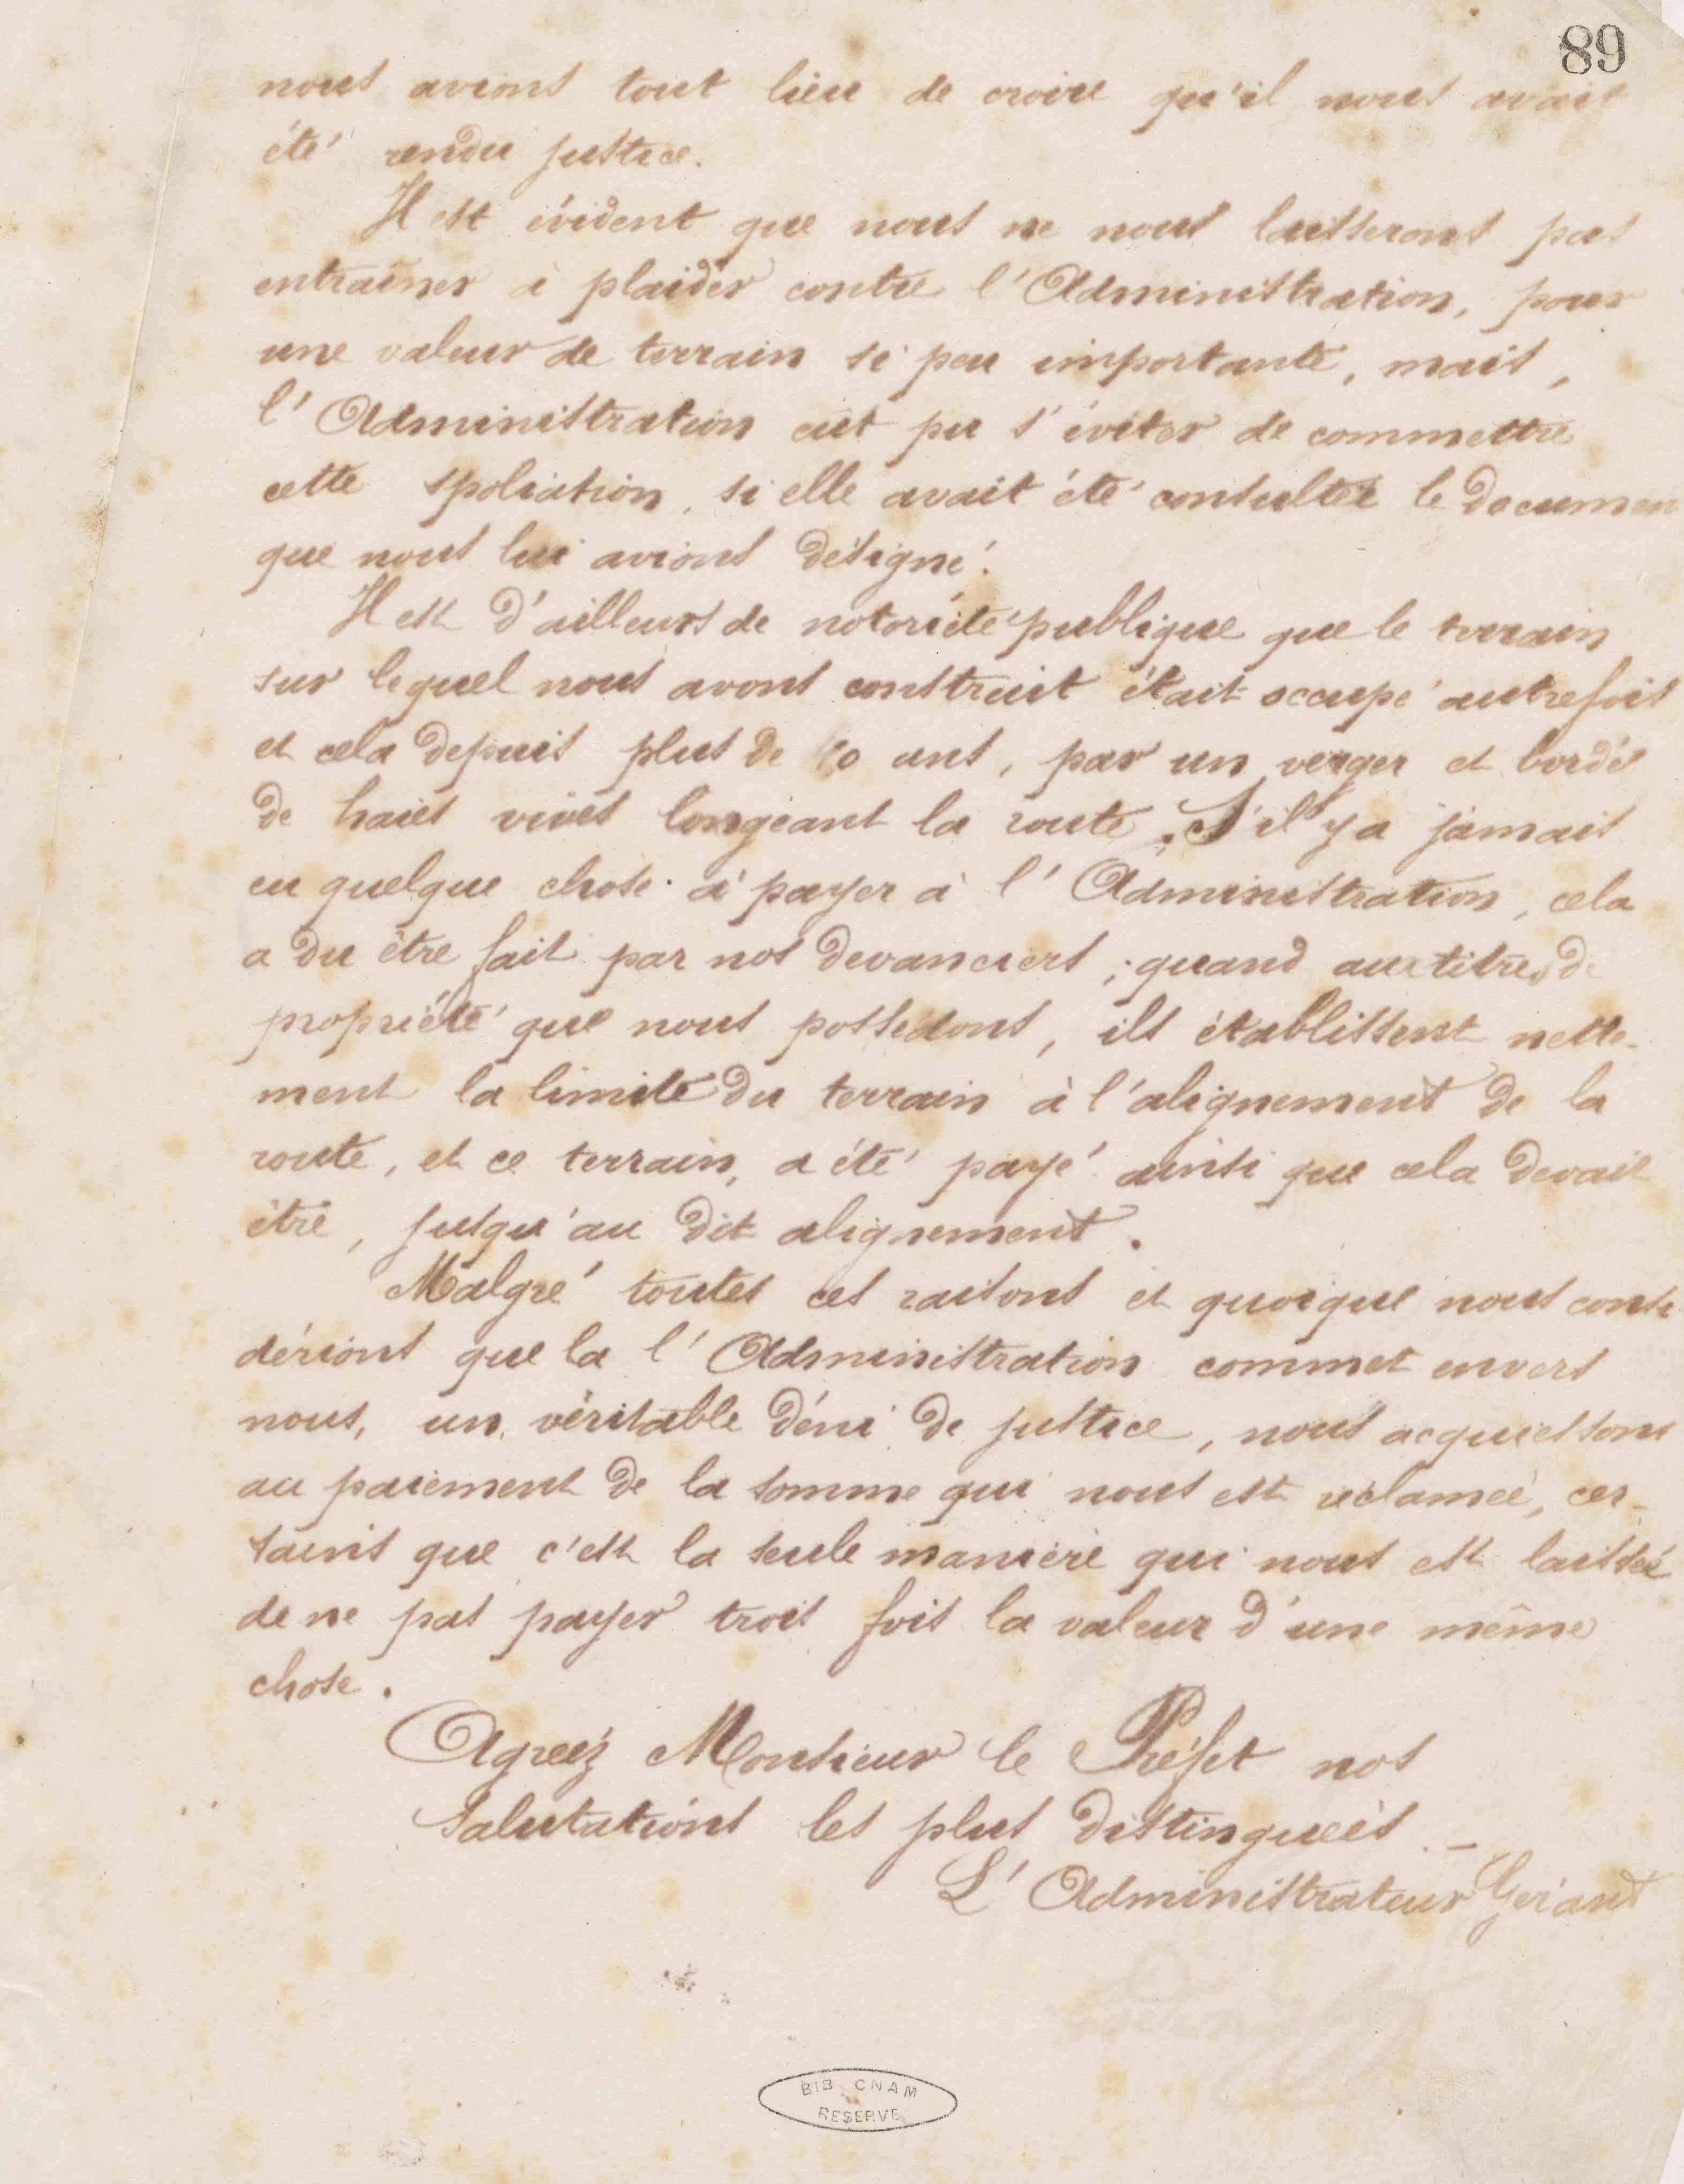 89
nous avions tout lieu de croire qu'il nous avait
été rendu justice.
Il est évident que nous ne nous laisserons pas
entraîner à plaider contre l'Administration, pour
une valeur de terrain si peu importante, mais,
l'Administration eut pu s'éviter de commettre
cette spoliation, si elle avait été consulter le documen
que nous lui avions désigné.
Il est d'ailleurs de notoriété publique que le terrain
sur lequel nous avons construit était occupé autrefois
et cela depuis plus de ans, par un verger et bordé
de haies vives longeant la route. S'il y a jamais
eu quelque chose à payer à l'Administration, cela
a du être fait par nos devanciers ; quand aux titres de
propriété que nous possédons, ils établissent nette-
ment la limite du terrain à l'alignement de la
route, et ce terrain, a été payé ainsi que cela devait
être, jusqu'au dit alignement.
Malgré toutes ces raisons et quoique nous consi
dérions que la l'Administration commet envers
nous, un véritable déni de justice, nous acquiessons
au paiement de la somme qui nous est réclamée, cer-
tains que c'est la seule manière qui nous est laissée
de ne pas payer trois fois la valeur d'une même
chose.
Agréez Monsieur le Préfet nos
Salutations les plus distinguées. —
L'Administrateur Gérant
BIB. CNAM
RESERVE